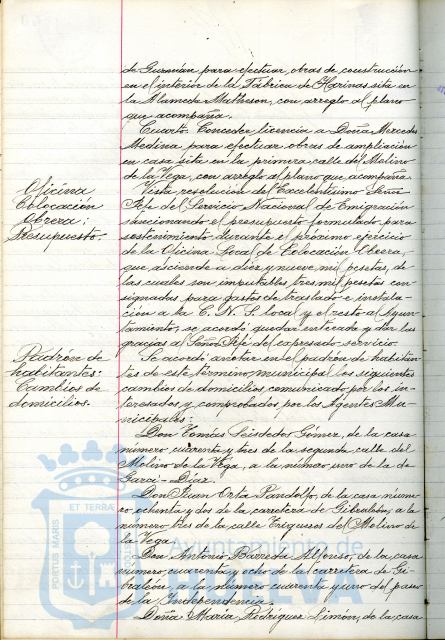 de Guzmán para efectuar obras de construcción
en el interior de la Fábrica de Harinas sita en
la Alameda Matheson, con arreglo al plano
que acompaña.
Cuarto. Conceder licencia a Doña Mercedes
Medina para efectuar obras de ampliación
en casa sita en la primera calle del Molino
de la Vega, con arreglo al plano que acompaña.
Oficina
Colocación
Obrera:
Presupuesto.
Vista resolución del Excelentísimo Señor
Jefe del Servicio Nacional de Emigración
sancionando el presupuesto formulado para
sostenimiento durante el próximo ejercicio
de la Oficina Local de Colocación Obrera,
que asciende a diez y nueve mil pesetas, de
las cuales son imputables tres mil pesetas con
signadas para gastos de traslado e instala-
ción a la C. N. S. local y el resto al Ayun-
tamiento, se acordó quedar enterado y dar las
gracias al Señor Jefe del expresado servicio.
Padrón de
habitantes:
Cambios de
domicilios.
Se acordó anotar en el padrón de habitan-
tes de este término municipal los siguientes
cambios de domicilios comunicado por los in-
teresados y comprobados por los Agentes Mu-
nicipales:
Don Tomás Seisdedos Gómez, de la casa
número cuarenta y tres de la segunda calle del
Molino de la Vega, a la número uno de la de
Garci-Díaz.
Don Juan Orta Pandolfo, de la casa número
ochenta y dos de la carretera de Gibraleón, a la
número tres de la calle Trigueros del Molino de
la Vega.
Don Antonio Barreda Alfonso, de la casa
número cuarenta y ocho de la carretera de Gi-
braleón, a la número cuarenta y uno del paseo
de la Independencia.
Doña María Rodríguez Limón, de la casa
PORTUS MARIS
ET TERRAE
Ayuntamiento de
HUELVA